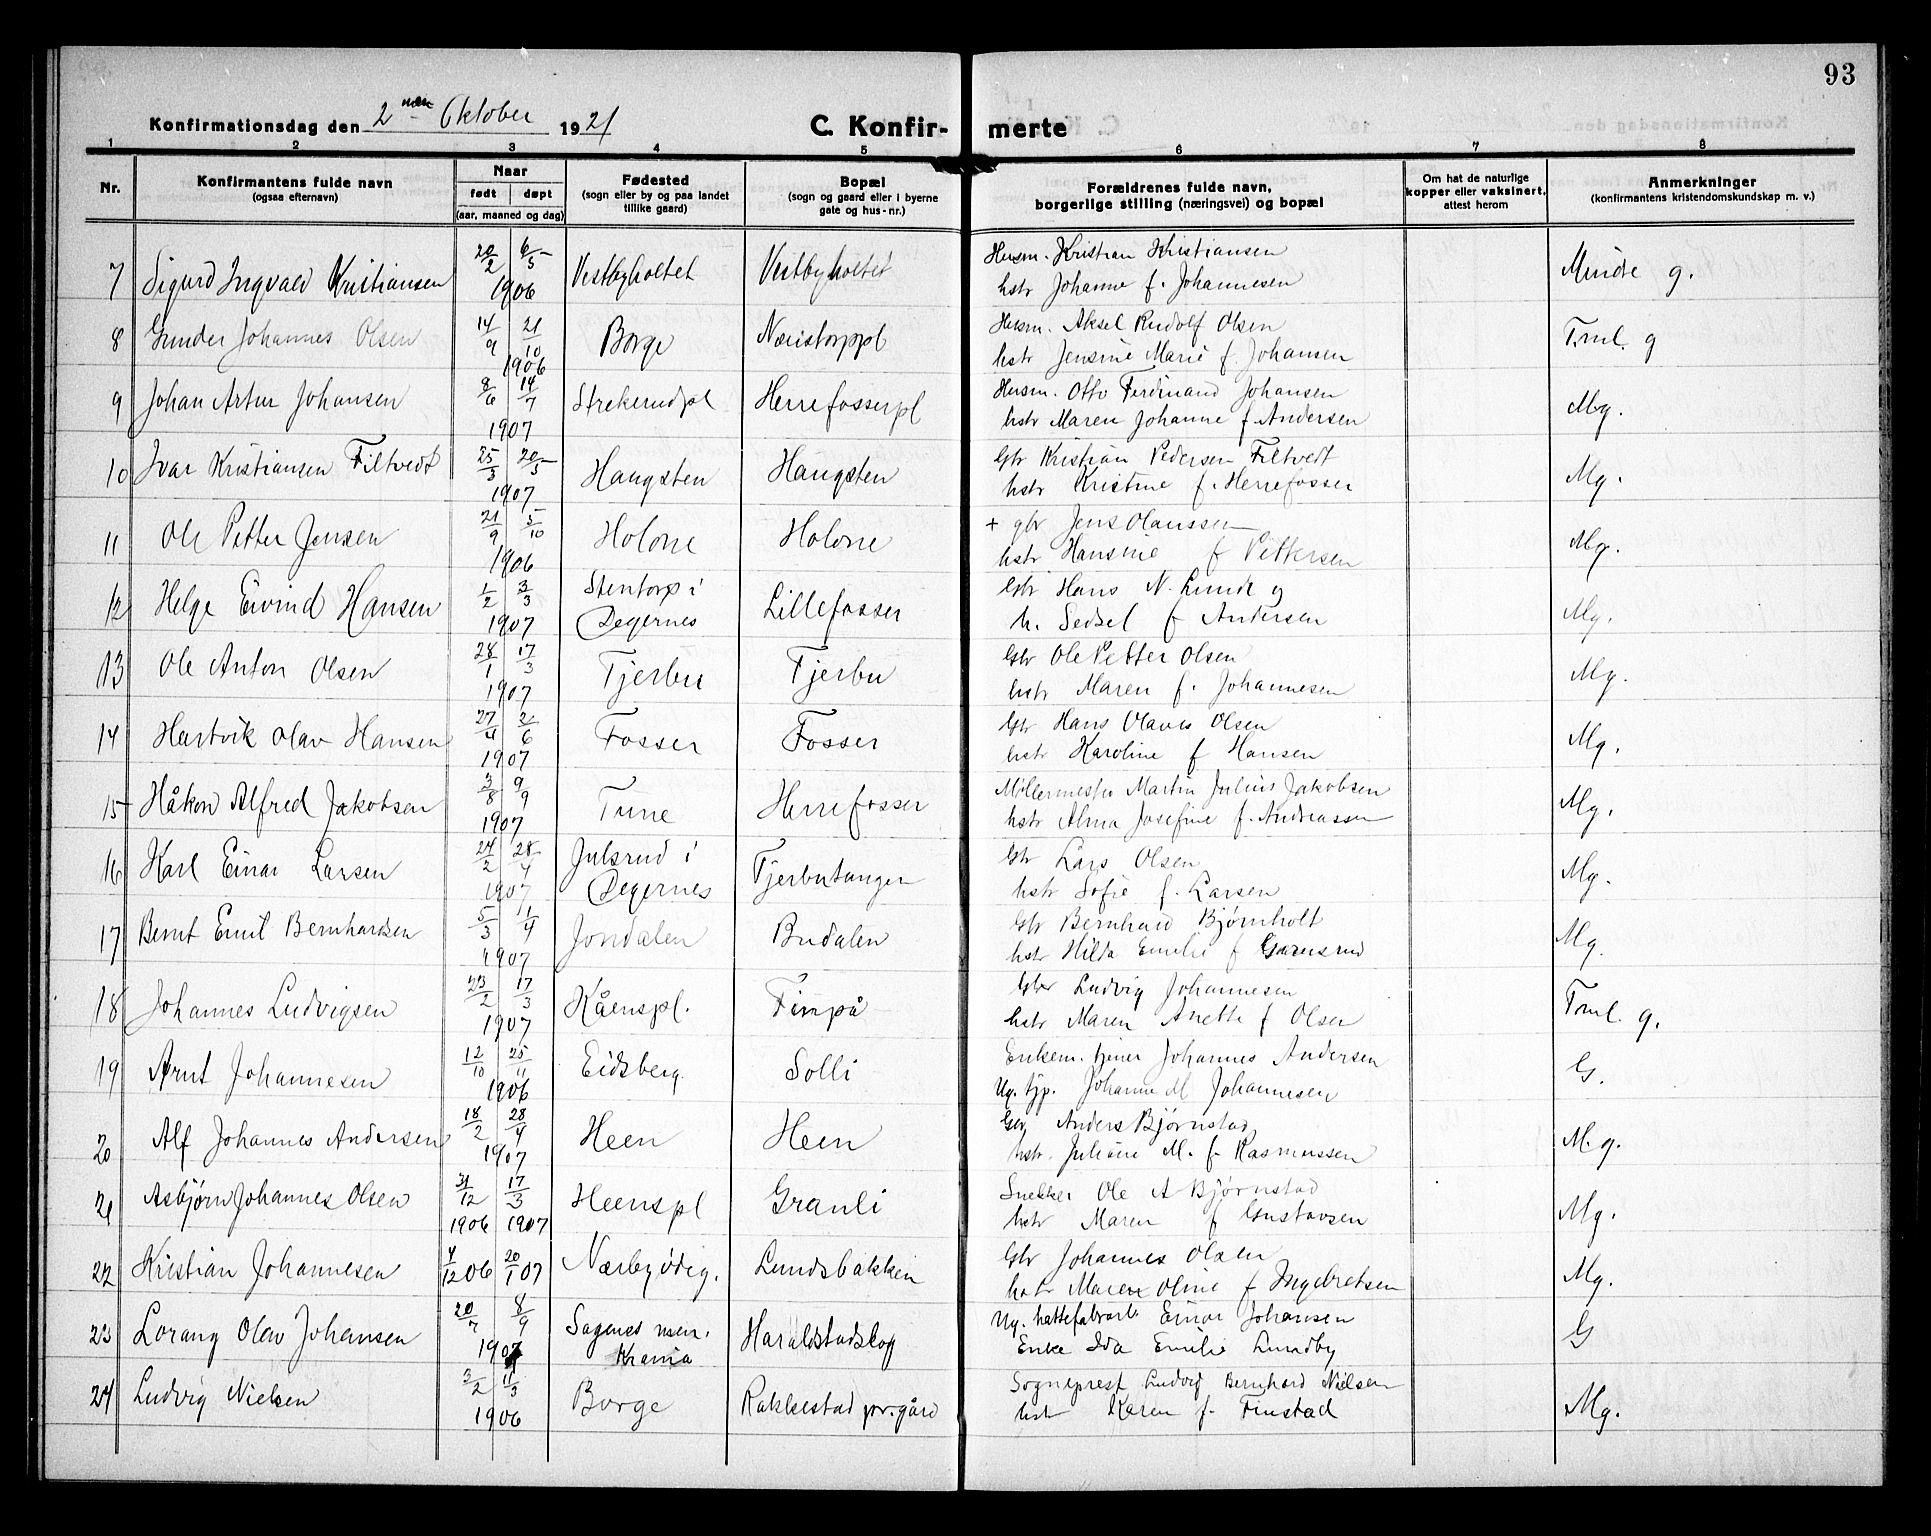 93
Konfirmationsdag den 2 Oktober 1921 C. Konfir- merte
1 2 3 4 5 6 7 8
Nr. Konfirmantens fulde navn (ogsaa efternavn) Naar født døpt (aar, maaned og dag) Fødested (sogn eller by og paa landet tillike gaard) Bopæl (sogn og gaard eller i byerne gate og hus-nr.) Forældrenes fulde navn, borgerlige stilling (næringsvei) og bopæl Om hat de naturlige kopper eller vaksinert, attest herom Anmerkninger (konfirmantens kristendomskundskap m. v.)
7 Sigurd Ingvald Kristiansen 20/2 6/5 1906 Vestbyholtet Vestbyholtet Husm. Kristian Kristiansen
hstr Johanne f. Johannesen Minde g.
8 Gunder Johannes Olsen 14/9 21/10 1906 Borge Næristorppl Husm. Aksel Rudolf Olsen
hstr Jensine Marie f. Johansen T.ml. g
9 Johan Artur Johansen 8/6 14/7 1907 Strekerudpl Herrefosserpl Husm. Otto Ferdinand Johansen
hstr Maren Johanne f. Andersen Mg.
10 Ivar Kristiansen Filtvedt 25/3 20/5 1907 Haugsten Haugsten Gbr Kristian Pedersen Filtvedt
hstr Kristine f. Herrefosser Mg.
11 Ole Petter Jensen 21/9 5/10 1906 Holone Holone + gbr Jens Olaussen
hstr Hansine f Pettersen Mg.
12 Helge Eivind Hansen 1/2 3/3 1907 Stentorp i Degernes Lillefosser Gbr Hans N. Lunde og
h. Sedsel f Andersen Mg.
13 Ole Anton Olsen 28/1 17/3 1907 Tjerbu Tjerbu Gbr Ole Petter Olsen
hstr Maren f. Johannesen Mg.
14 Hartvik Olav Hansen 27/4 2/6 1907 Fosser Fosser Gbr Hans Olaves Olsen
hstr Karoline f Hansen Mg.
15 Håkon Alfred Jakobsen 3/8 9/9 1907 Tune Herrefosser Møllermester Martin Julius Jakobsen
hstr Alma Josefine f. Andreassen Mg.
16 Karl Einar Larsen 24/2 28/4 1907 Julsrud i Degernes Tjerbutangen Gbr Lars Olsen
hstr Sofie f. Larsen Mg.
17 Bernt Emil Bernhardsen 5/3 1/4 1907 Jondalen Budalen Gbr Bernhard Bjørnholt
hstr Hilda Emilie f Garnsrud Mg.
18 Johannes Ludvigsen 23/2 17/3 1907 Kåenspl. Timpå Gbr Ludvig Johannesen
hstr Maren Anette f Olsen T.ml. g.
19 Arnt Johannesen 12/10 25/11 1906 Eidsberg Solli Enkem. tjener Johannes Andersen
Ug. tjp. Johanne M Johannesen G.
20 Alf Johannes Andersen 18/2 28/4 1907 Heen Heen Gbr Anders Bjørnstad
hstr. Juliane M. f. Rasmussen M.g.
21 Asbjørn Johannes Olsen 31/12 1906 17/3 1907 Heenspl Granli Snekker Ole A Bjørnstad
hstr Maren f Gustavsen Mg.
22 Kristian Johannesen 4/12 06 20/1 07 Nærbyødeg. Lundsbakken Gbr Johannes Olsen
hstr Maren Oline f Ingebretsen Mg.
23 Lorang Olav Johansen 20/7 8/9 1907 Sagenes men. Krania Haraldstadskog Ug. hattefabrarb Einar Johansen
Enke Ida Emilie Lundby G
24 Ludvig Nielsen 3/2 11/3 1906 Borge Rakkestad pr.gård Sogneprest Ludvig Bernhard Nielsen
hstr Karen f. Finstad Mg.